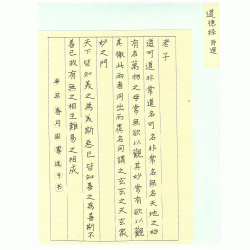 道德經 節選
老子
道可道非常道名可名非常名無名天地之始
有名萬物之母常無欲以觀其妙常有欲以觀
其徼此兩者同出而異名同謂之玄玄之又玄眾
妙之門
天下皆知美之為美斯惡已皆知善之為善斯不
善已故有無之相生難易之相成
春月 書